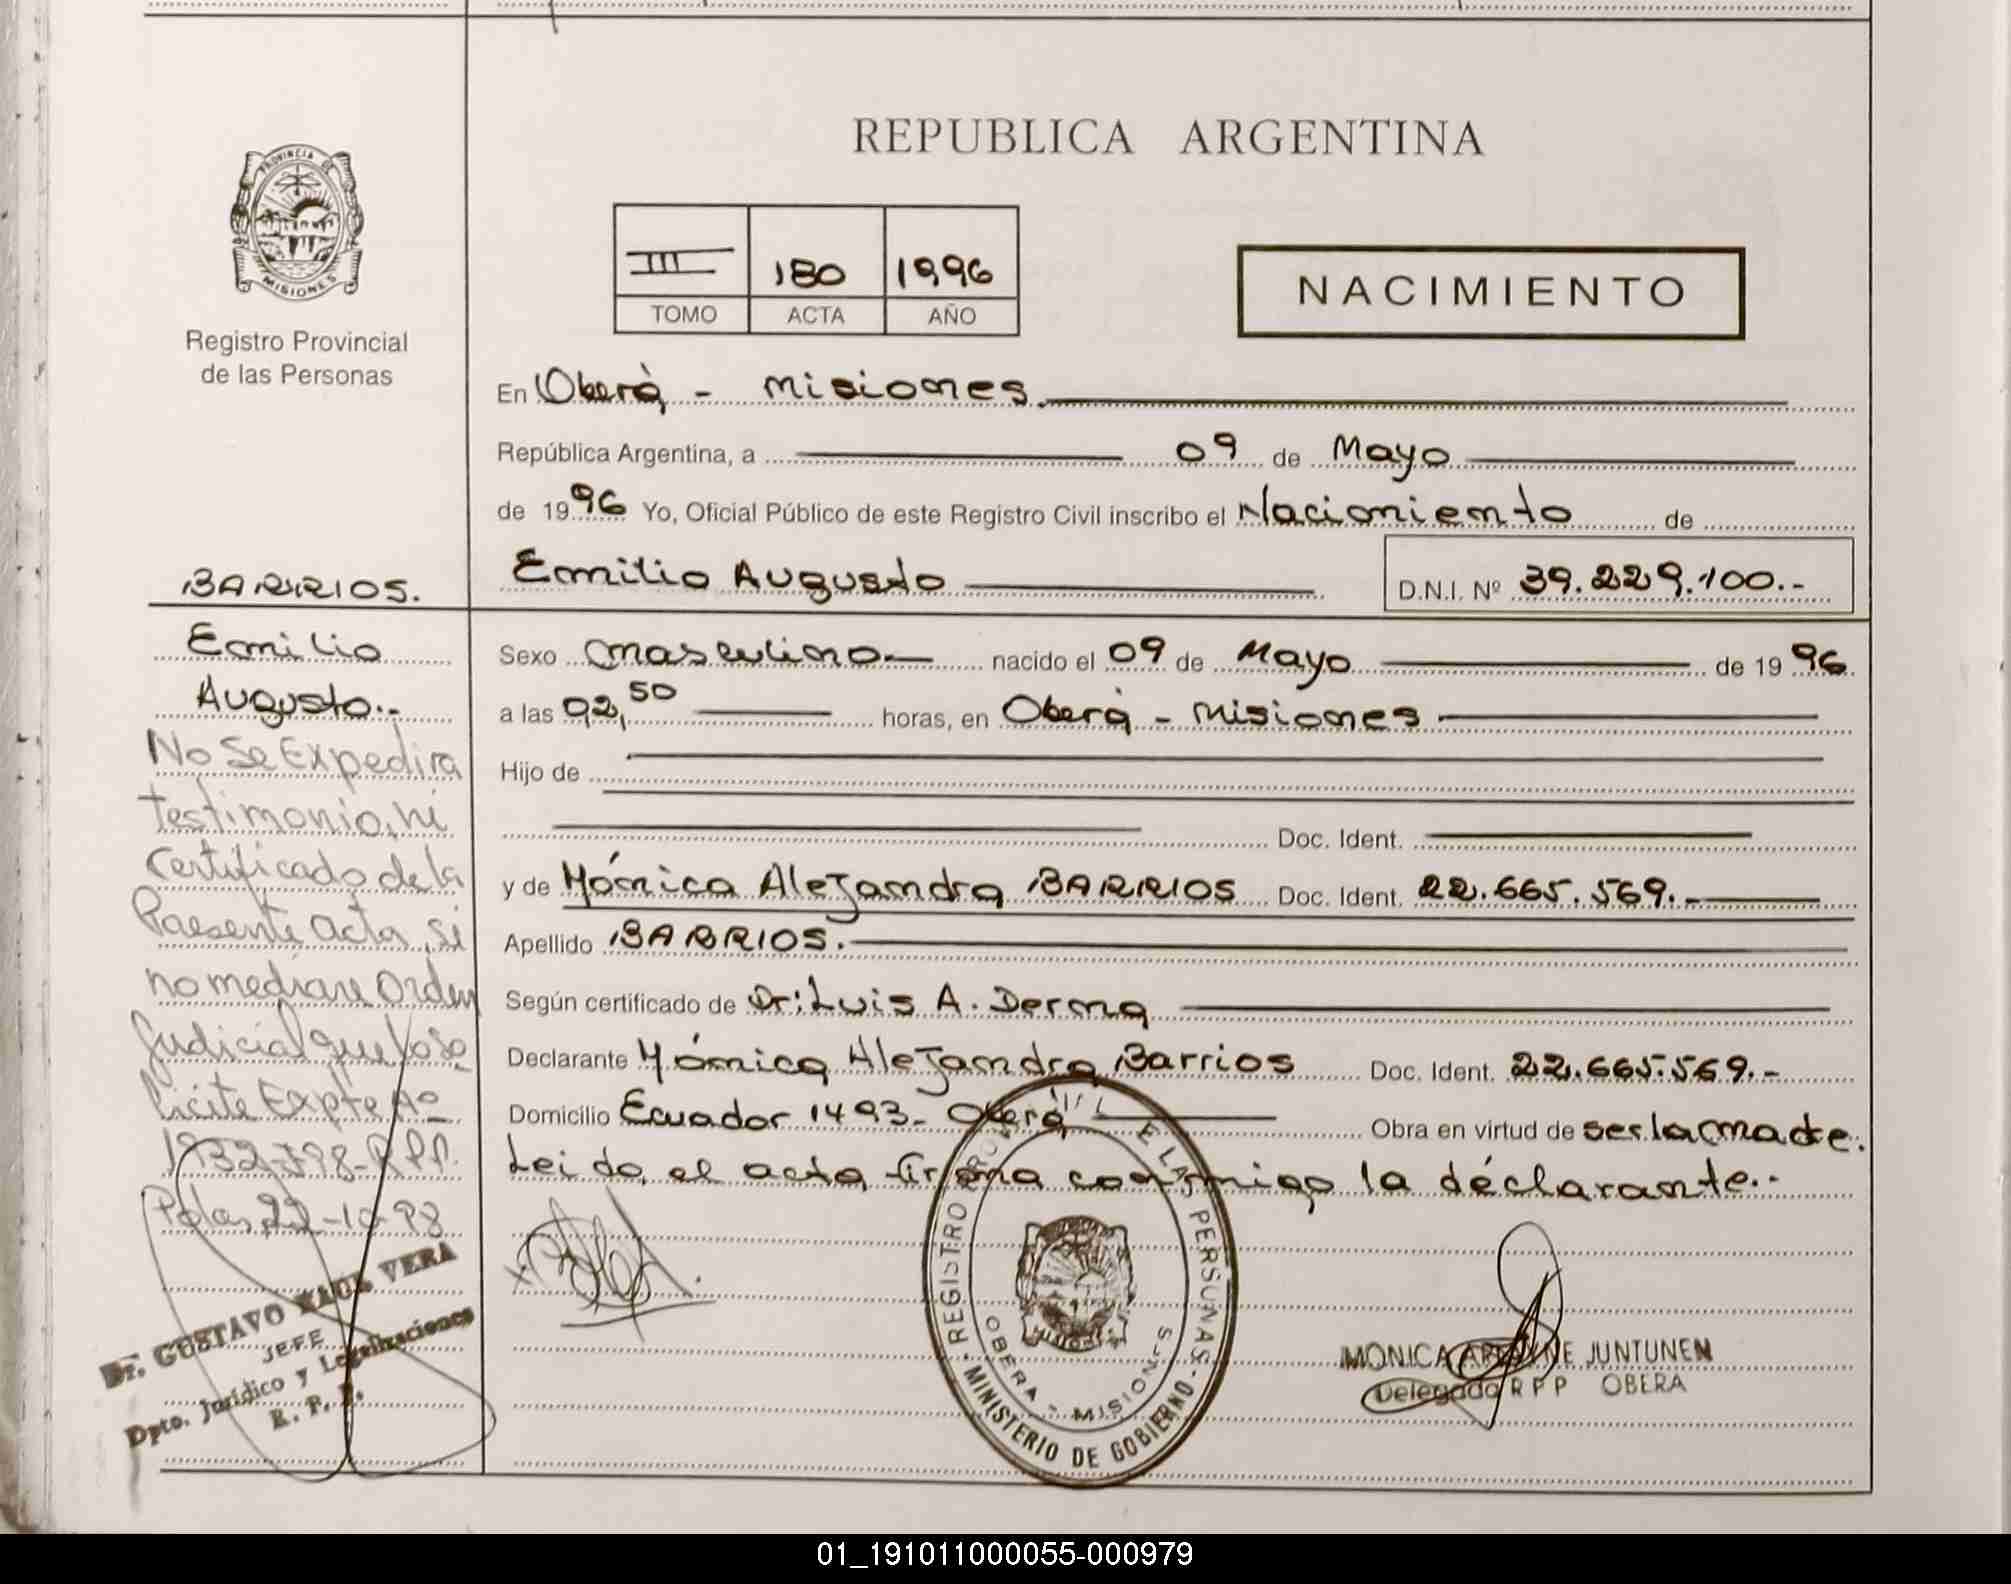 REPUBLICA ARGENTINA
PROVINCIA DE
MISIONES
Registro Provincial
de las Personas
III 180 1996
TOMO ACTA AÑO
NACIMIENTO
En Oberá - Misiones.
República Argentina, a 09 de Mayo
de 1996 Yo, Oficial Público de este Registro Civil inscribo el Nacimiento de
Emilio Augusto D.N.I. Nº 39.229.100.-
Sexo masculino nacido el 09 de Mayo de 1996
a las 02,50 horas, en Oberá - Misiones
Hijo de
Doc. Ident.
y de Mónica Alejandra BARRIOS Doc. Ident. 22.665.569.-
Apellido BARRIOS.
Según certificado de Dr: Luis A. Derma
Declarante Mónica Alejandra Barrios Doc. Ident. 22.665.569.-
Domicilio Ecuador 1493- Oberá Obra en virtud de ser la madre.
Leido el acta firma conmigo la declarante.-
BARRIOS.
Emilio
Augusto.-
No Se Expedira
testimonio, ni
Certificado de la
Presente acta, si
no mediare Orden
Judicial que lo so-
licite Expte Nº
1932-398-RPP.
Pdas, 22-10-98
Dr. GUSTAVO RAUL VERA
JEFE
Dpto. Jurídico y Legalizaciones
R. P. P.
REGISTRO DE LAS PERSONAS
MINISTERIO DE GOBIERNO
OBERA - MISIONES
MISIONES
MONICA JUNTUNEN
Delegada R P P OBERA
01_191011000055-000979